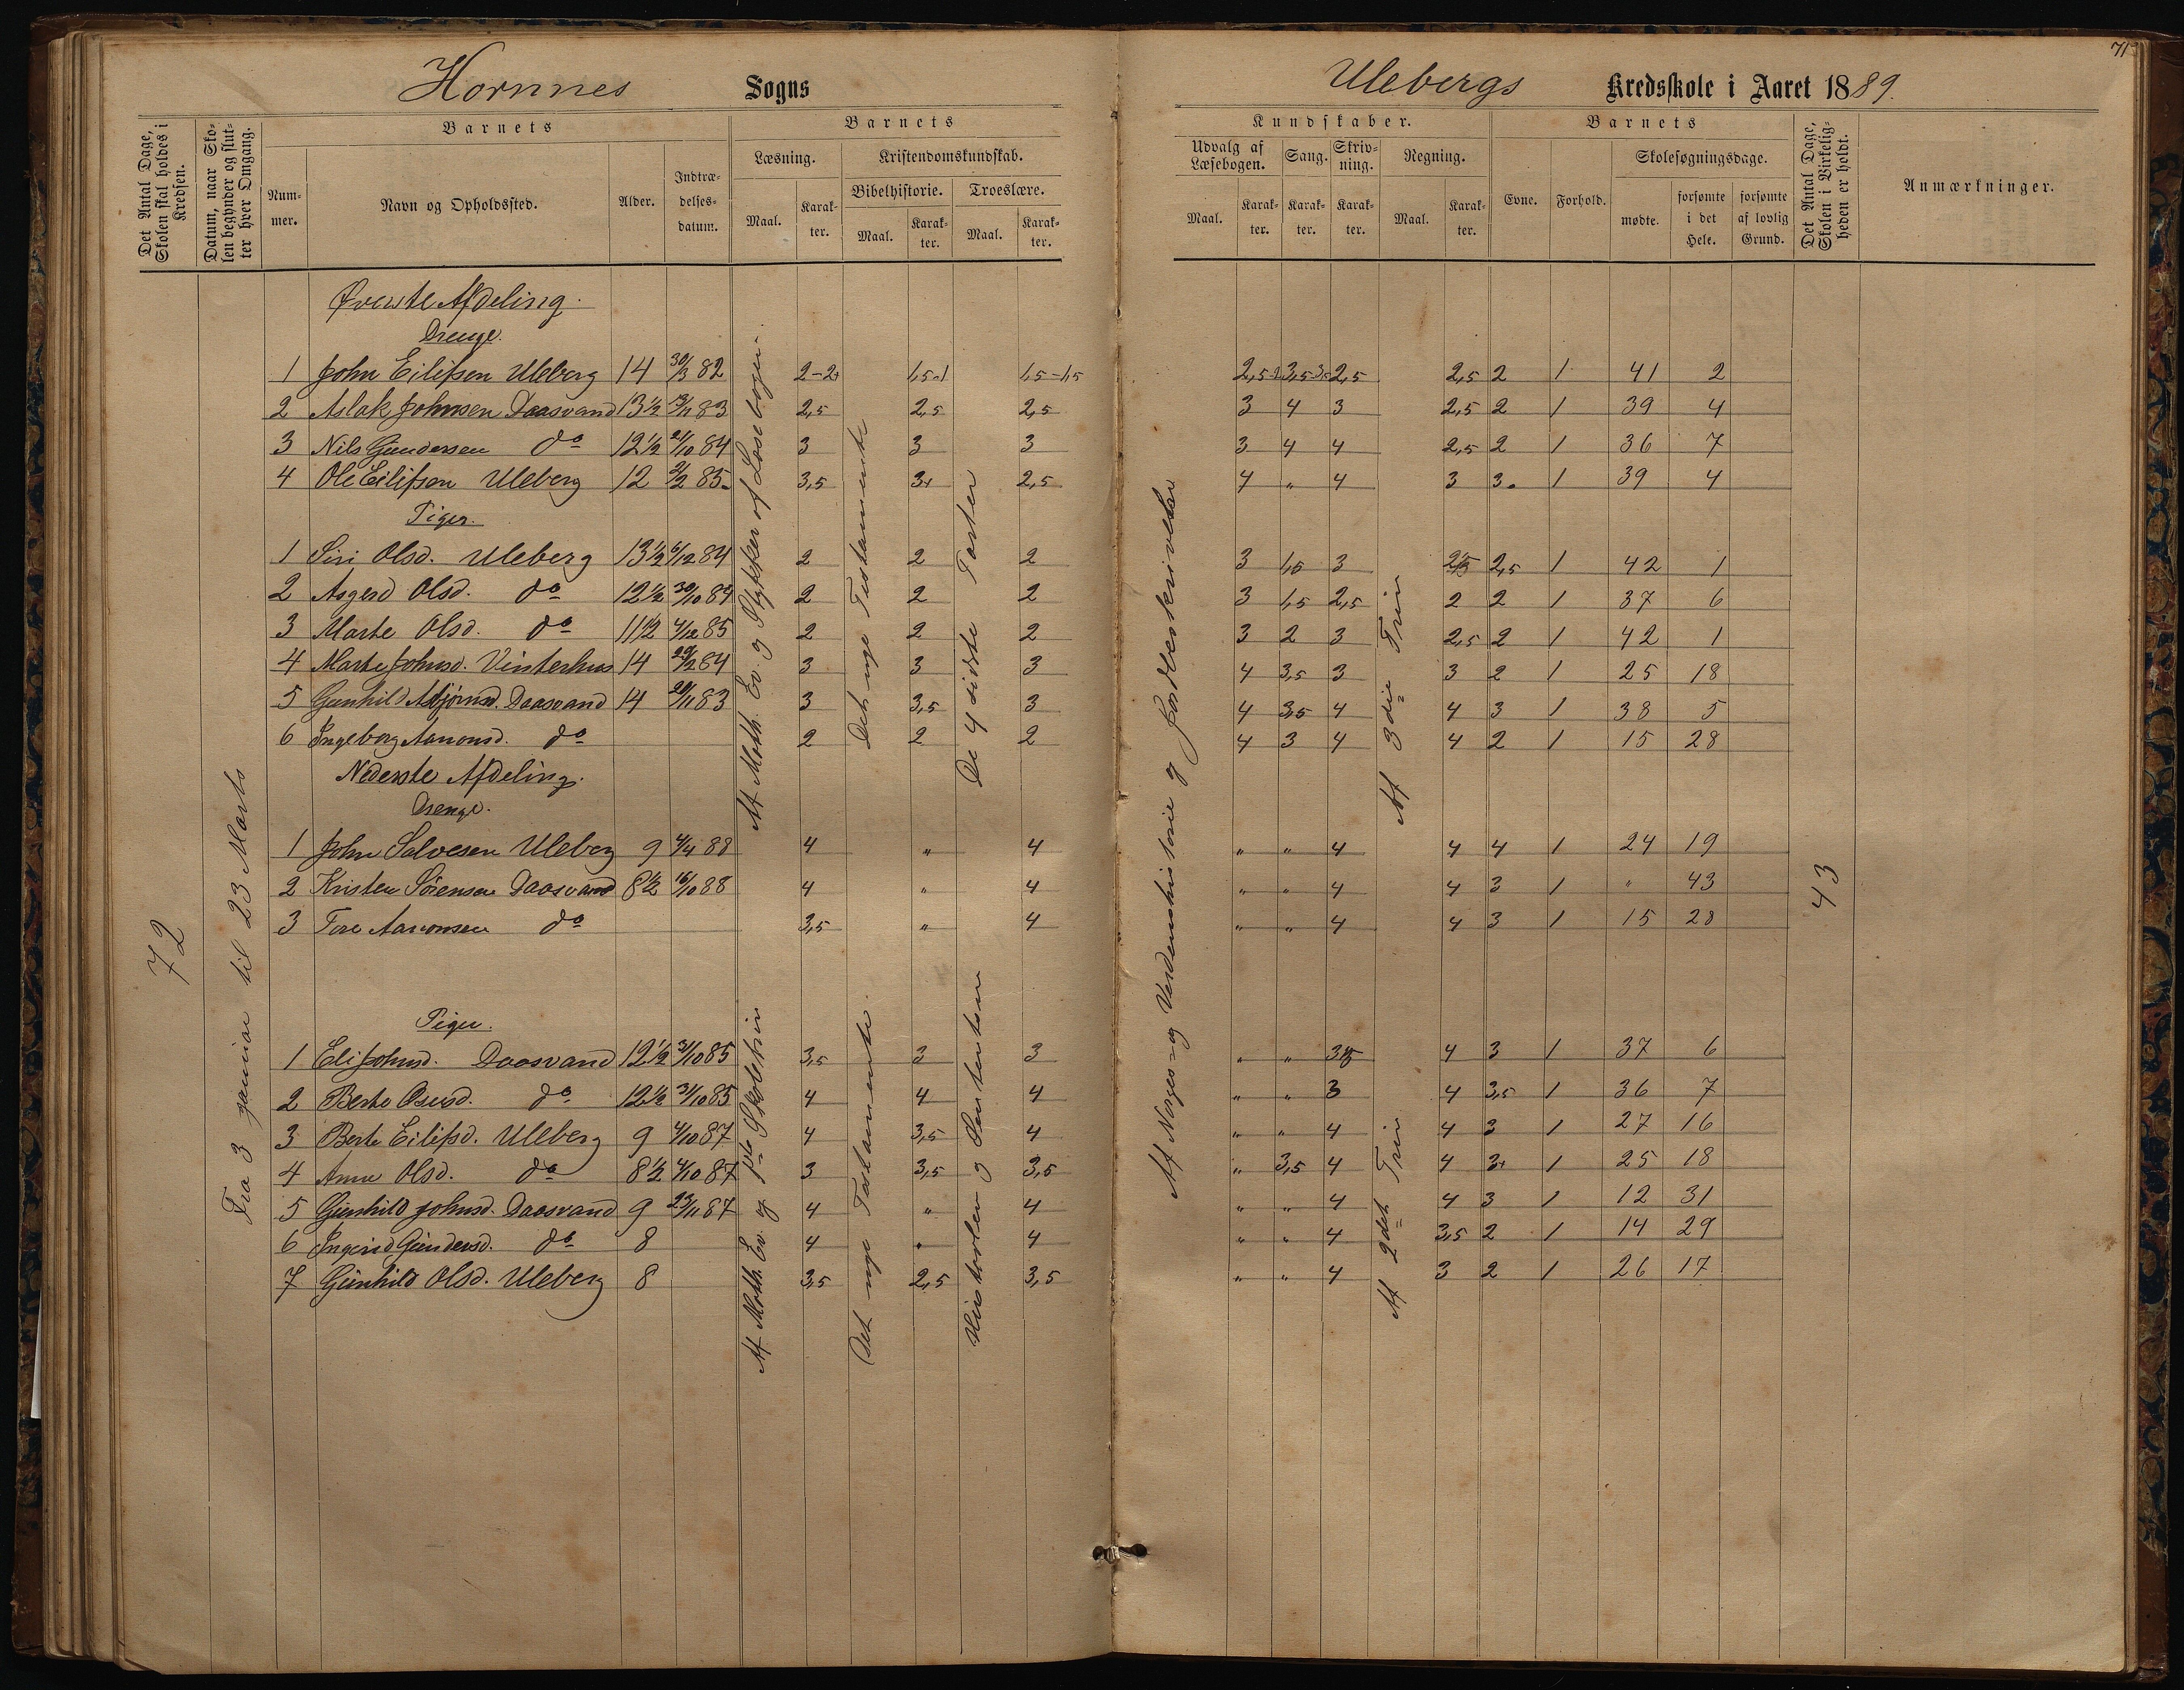 71
Hornnes Sogns
Ulebergs Kredsskole i Aaret 1889.
Det Antal Dage, Skolen skal holdes i Kredsen.
Datum, naar Skolen begynder og slutter hver Omgang.
Barnets
Nummer.
Navn og Opholdssted.
Alder.
Indtrædelsesdatum.
Barnets
Læsning.
Kristendomskundskab.
Maal.
Karakter.
Bibelhistorie.
Troeslære.
Maal.
Karakter.
Maal.
Karakter.
Kundskaber.
Udvalg af Læsebogen.
Sang.
Skrivning.
Regning.
Maal.
Karakter.
Karakter.
Karakter.
Maal.
Karakter.
Barnets
Evne.
Forhold.
Skolesøgningsdage.
mødte.
forsømte i det Hele.
forsømte af lovlig Grund.
Det Antal Dage, Skolen i Virkeligheden er holdt.
Anmærkninger.
72
Fra 3 januar til 23 Marts
Øverste Afdeling.
Drenge.
1 John Eilifsen Uleberg 14 30/3 82 2-2+ 1,5-1 1,5-1,5 2,5-2 3,5-3,5 2,5 2,5 2 1 41 2
2 Aslak Johnsen Daasvand 13½ 13/11 83 2,5 2,5 2,5 3 4 3 2,5 2 1 39 4
3 Nils Gundersen do 12½ 21/10 84 3 3 3 3 4 4 2,5 2 1 36 7
4 Ole Eilifsen Uleberg 12 2/2 85 3,5 3+ 2,5 4 " 4 3 3 1 39 4
Piger.
1 Siri Olsd. Uleberg 13½ 6/12 84 2 2 2 3 1,5 3 2,5 2,5 1 42 1
2 Asgerd Olsd. do 12½ 30/10 84 2 2 2 3 1,5 2,5 2 2 1 37 6
3 Marte Olsd. do 11½ 4/12 85 2 2 2 3 2 3 2,5 2 1 42 1
4 Marte Johnsd. Vinterhus 14 29/2 84 3 3 3 4 3,5 3 3 2 1 25 18
5 Gunhild Asbjørnsd. Daasvand 14 20/11 83 3 3,5 3 4 3,5 4 4 3 1 38 5
6 Ingeborg Aanonsd. do 2 2 2 4 3 4 4 2 1 15 28
Af Meth. Ev. og Stykker af Læsebogen.
Det nye Testamente
De 4 sidste Parter
Af Norges og Verdenshistorie og Jordbeskrivelse
Af 3die Trin
Nederste Afdeling.
Drenge.
1 John Salvesen Uleberg 9 4/4 88 4 " 4 " " 4 4 4 1 24 19
2 Kristen Sørensen Daasvand 8½ 16/10 88 4 " 4 " " 4 4 3 1 " 43
3 Tore Aanonsen do 3,5 " 4 " " 4 4 3 1 15 28
43
Piger.
1 Eli Johnsd. Daasvand 12½ 31/10 85 3,5 3 3 " " 3,5 4 3 1 37 6
2 Berte Osmsd. do 12½ 31/10 85 4 4 4 " " 3 4 3,5 1 36 7
3 Berte Eilifsd. Uleberg 9 4/10 87 4 3,5 4 " " 4 4 3 1 27 16
4 Anne Olsd. do 8½ 4/10 87 3 3,5 3,5 " 3,5 4 4 3+ 1 25 18
5 Gunhild Johnsd. Daasvand 9 23/11 87 4 " 4 " " 4 4 3 1 12 31
6 Ingerid Gundersd. do 8 4 " 4 " " 4 3,5 2 1 14 29
7 Gunhild Olsd. Uleberg 8 3,5 2,5 3,5 " " 4 3 2 1 26 17
Af Meth. Ev. og 1ste Skoletrin
Det nye Testamente.
Af 2det Trin